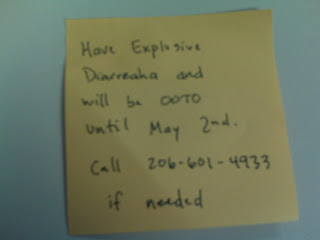 Have Explosive
Diarreaha and
will be OOTO
until May 2nd.
Call 206-601-4933
if needed